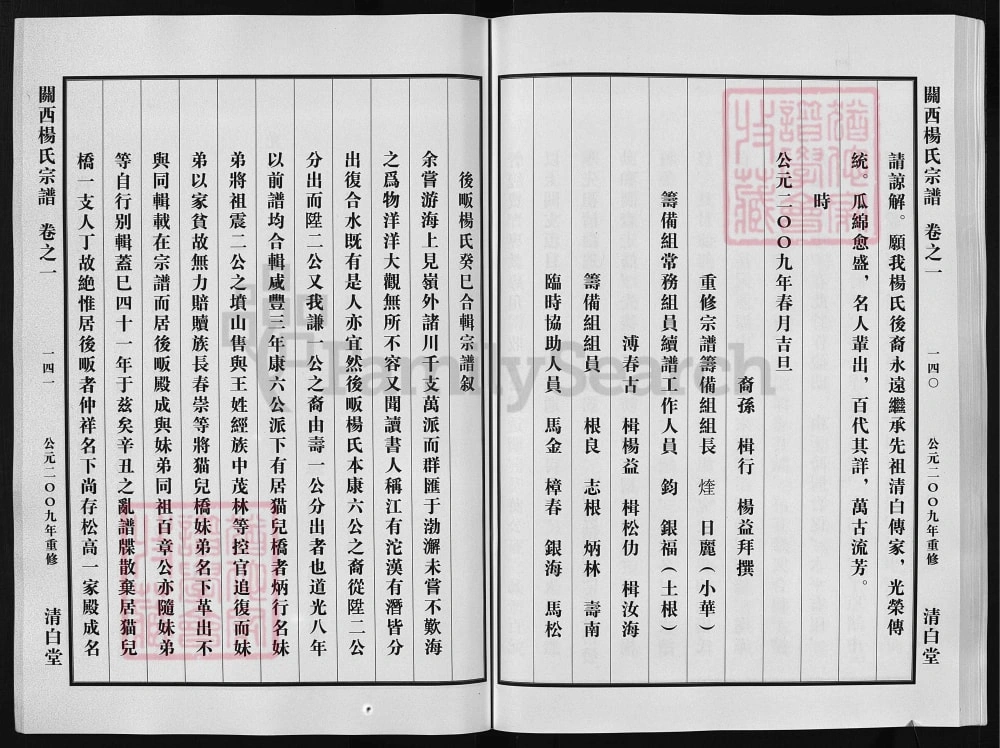 關西楊氏宗譜 卷之一
一四〇
公元二〇〇九年重修
清白堂
請諒解。願我楊氏後裔永遠繼承先祖清白傳家，光榮傳
統。瓜綿愈盛，名人輩出，百代其詳，萬古流芳。
時
公元二〇〇九年春月吉旦
裔孫 楫行 楊益拜撰
重修宗譜籌備組組長 煃 日麗（小華）
籌備組常務組員續譜工作人員 鈞 銀福（土根）
溥春古 楫楊益 楫松仂 楫汝海
籌備組組員 根良 志根 炳林 壽南
臨時協助人員 馬金 樟春 銀海 馬松
後畈楊氏癸巳合輯宗譜叙
余嘗游海上見嶺外諸川千支萬派而群匯于渤澥未嘗不歎海
之爲物洋洋大觀無所不容又聞讀書人稱江有沱漢有潛皆分
出復合水既有是人亦宜然後畈楊氏本康六公之裔從陞二公
分出而陞二公又我謙一公之裔由壽一公分出者也道光八年
以前譜均合輯咸豐三年康六公派下有居猫兒橋者炳行名妹
弟將祖震二公之墳山售與王姓經族中茂林等控官追復而妹
弟以家貧故無力賠贖族長春崇等將猫兒橋妹弟名下革出不
與同輯載在宗譜而居後畈殿成與妹弟同祖百章公亦隨妹弟
等自行别輯蓋巳四十一年于兹矣辛丑之亂譜牒散棄居猫兒
橋一支人丁故絶惟居後畈者仲祥名下尚存松高一家殿成名
關西楊氏宗譜 卷之一
一四一
公元二〇〇九年重修
清白堂
FamilySearch